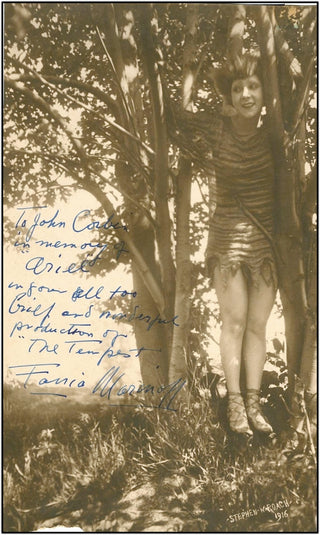 To John Corbin
in memory of
"Ariel"
in your all too
brief and wonderful
production of
"The Tempest"
Fania Marinoff
STEPHEN W. ROACH
1916